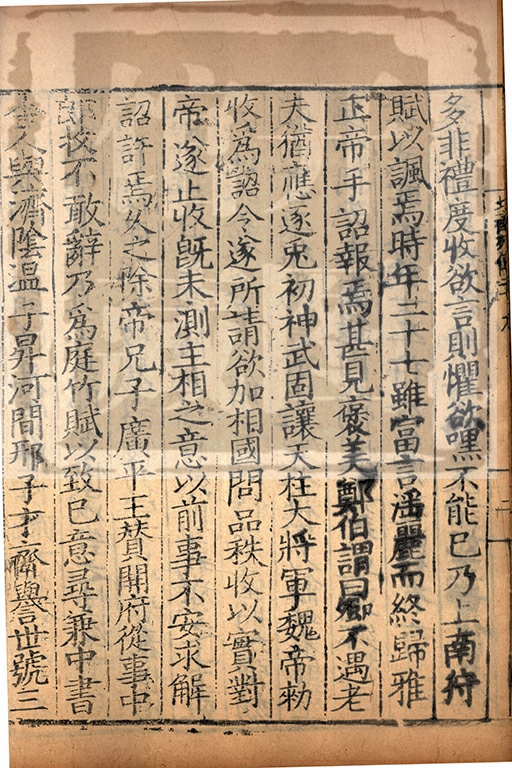 多非禮度收欲言則懼欲嘿不能已乃上南狩
賦以諷焉時年二十七雖富言滛麗而終歸雅
正帝手詔報焉甚見褒美鄭伯謂曰卿不遇老
夫猶應逐兎初神武固讓天柱大將軍魏帝勑
收爲詔令遂所請欲加相國問品秩收以實對
帝遂止收旣未測主相之意以前事不安求解
詔許焉久之除帝兄子廣平王贊開府從事中
郎收不敢辭乃爲庭竹賦以致已意尋兼中書
舍人與濟陰温子昇河間邢子才齊譽世號三